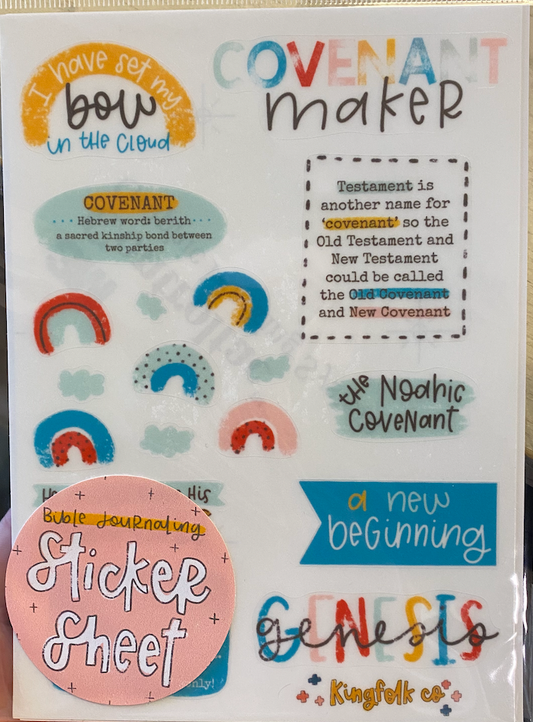 I have set my
bow
in the Cloud
COVENANT
maker
COVENANT
Hebrew word: berith
a sacred kinship bond between
two parties
Testament is
another name for
'covenant' so the
Old Testament and
New Testament
could be called
the Old Covenant
and New Covenant
the Noahic
Covenant
His
Bible Journaling
Sticker
Sheet
only!
a new
beginning
GENESIS
genesis
Kingfolk co